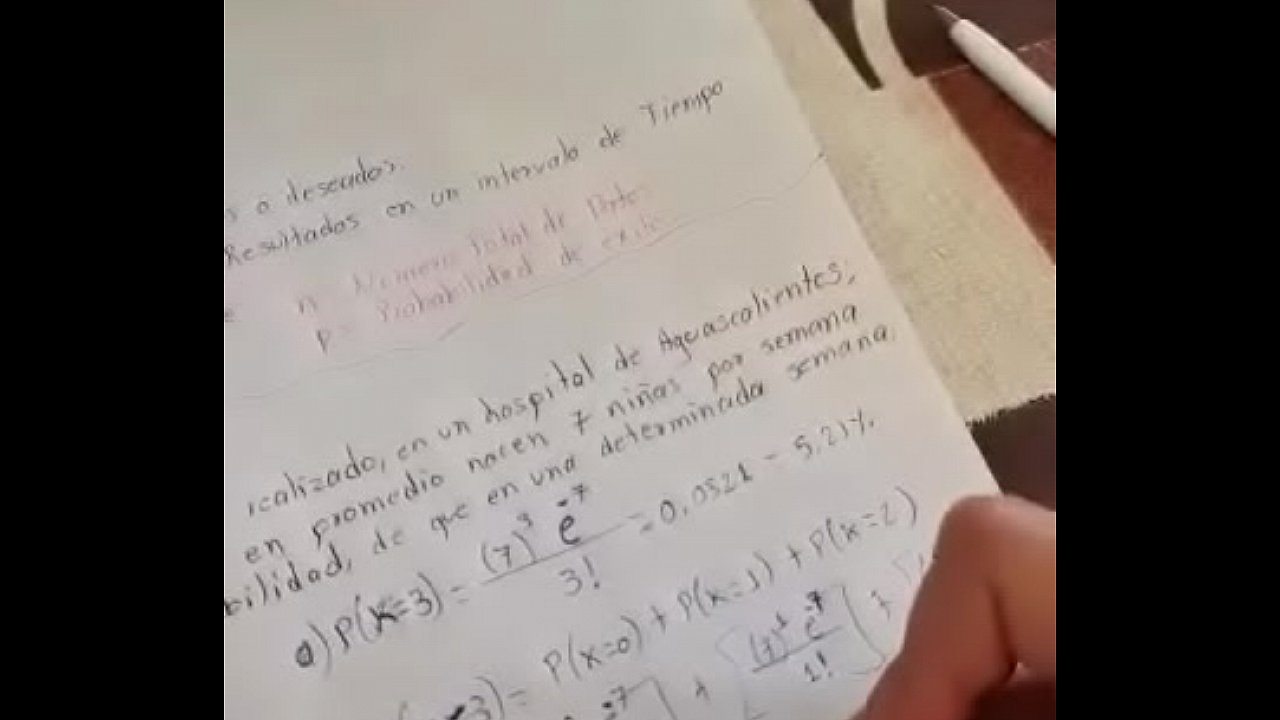 s o deseados.
Resultados en un intervalo de Tiempo
n = Numero Total de
p = Probabilidad de exito
realizado, en un hospital de Aguascalientes,
en promedio nacen 7 niñas por semana
bilidad, de que en una determinada semana.
a) P(x=3) = (7)³ e⁻⁷ / 3! = 0,0521 - 5,21%
3) = P(x=0) + P(x=1) + P(x=2)
⁻⁷ ] + [ (7)¹ e⁻⁷ / 1! ] +